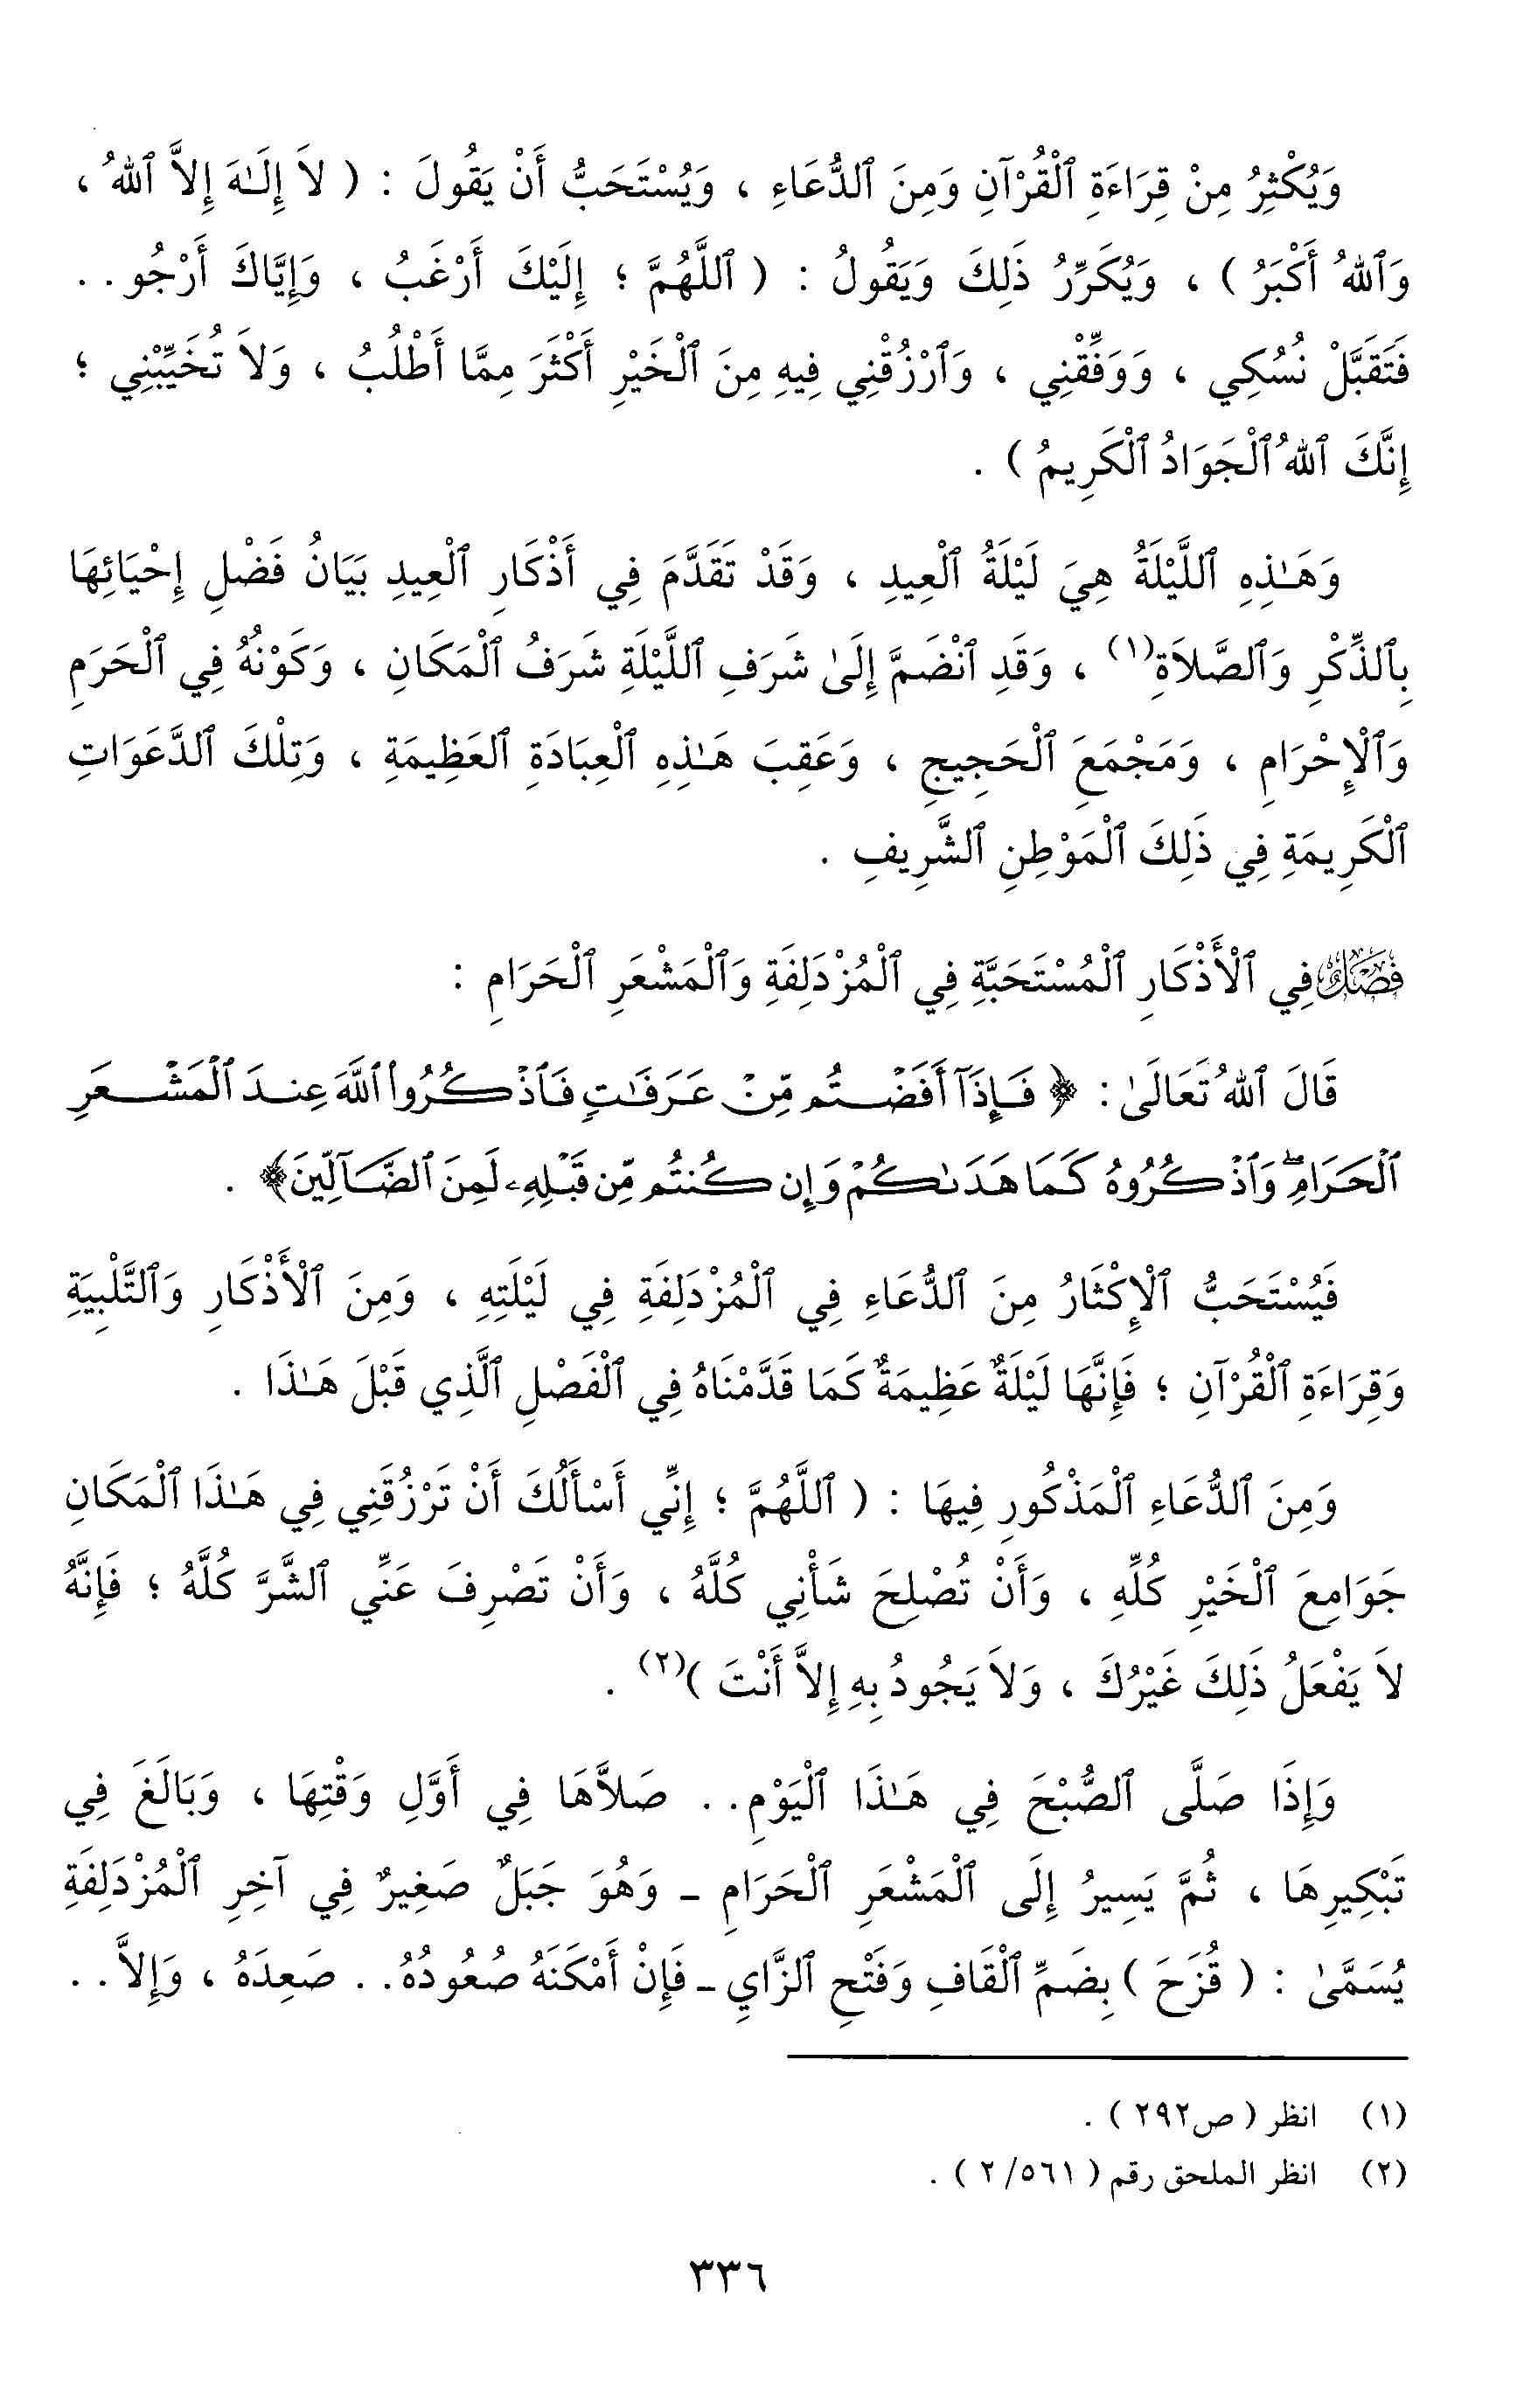 وَيُكْثِرُ مِنْ قِرَاءَةِ ٱلْقُرْآنِ وَمِنَ ٱلدُّعَاءِ ، وَيُسْتَحَبُّ أَنْ يَقُولَ : ( لاَ إِلَـٰهَ إِلاَّ ٱللهُ ،
وَٱللهُ أَكْبَرُ ) ، وَيُكَرِّرُ ذَلِكَ وَيَقُولُ : ( ٱللَّهُمَّ ؛ إِلَيْكَ أَرْغَبُ ، وَإِيَّاكَ أَرْجُو . .
فَتَقَبَّلْ نُسُكِي ، وَوَفِّقْنِي ، وَٱرْزُقْنِي فِيهِ مِنَ ٱلْخَيْرِ أَكْثَرَ مِمَّا أَطْلُبُ ، وَلاَ تُخَيِّبْنِي ؛
إِنَّكَ ٱللهُ ٱلْجَوَادُ ٱلْكَرِيمُ ) .
وَهَـٰذِهِ ٱللَّيْلَةُ هِيَ لَيْلَةُ ٱلْعِيدِ ، وَقَدْ تَقَدَّمَ فِي أَذْكَارِ ٱلْعِيدِ بَيَانُ فَضْلِ إِحْيَائِهَا
بِٱلذِّكْرِ وَٱلصَّلاَةِ(١) ، وَقَدِ ٱنْضَمَّ إِلَىٰ شَرَفِ ٱللَّيْلَةِ شَرَفُ ٱلْمَكَانِ ، وَكَوْنُهُ فِي ٱلْحَرَمِ
وَٱلْإِحْرَامِ ، وَمَجْمَعَ ٱلْحَجِيجِ ، وَعَقِبَ هَـٰذِهِ ٱلْعِبَادَةِ ٱلعَظِيمَةِ ، وَتِلْكَ ٱلدَّعَوَاتِ
ٱلْكَرِيمَةِ فِي ذَلِكَ ٱلْمَوْطِنِ ٱلشَّرِيفِ .
فَصْلٌ فِي ٱلْأَذْكَارِ ٱلْمُسْتَحَبَّةِ فِي ٱلْمُزْدَلِفَةِ وَٱلْمَشْعَرِ ٱلْحَرَامِ :
قَالَ ٱللهُ تَعَالَىٰ : ﴿ فَإِذَآ أَفَضْتُم مِّنْ عَرَفَٰتٍ فَٱذْكُرُوا۟ ٱللَّهَ عِندَ ٱلْمَشْعَرِ
ٱلْحَرَامِۖ وَٱذْكُرُوهُ كَمَا هَدَىٰكُمْ وَإِن كُنتُم مِّن قَبْلِهِۦ لَمِنَ ٱلضَّآلِّينَ﴾ .
فَيُسْتَحَبُّ ٱلْإِكْثَارُ مِنَ ٱلدُّعَاءِ فِي ٱلْمُزْدَلِفَةِ فِي لَيْلَتِهِ ، وَمِنَ ٱلْأَذْكَارِ وَٱلتَّلْبِيَةِ
وَقِرَاءَةِ ٱلْقُرْآنِ ؛ فَإِنَّهَا لَيْلَةٌ عَظِيمَةٌ كَمَا قَدَّمْنَاهُ فِي ٱلْفَصْلِ ٱلَّذِي قَبْلَ هَـٰذَا .
وَمِنَ ٱلدُّعَاءِ ٱلْمَذْكُورِ فِيهَا : ( ٱللَّهُمَّ ؛ إِنِّي أَسْأَلُكَ أَنْ تَرْزُقَنِي فِي هَـٰذَا ٱلْمَكَانِ
جَوَامِعَ ٱلْخَيْرِ كُلِّهِ ، وَأَنْ تُصْلِحَ شَأْنِي كُلَّهُ ، وَأَنْ تَصْرِفَ عَنِّي ٱلشَّرَّ كُلَّهُ ؛ فَإِنَّهُ
لاَ يَفْعَلُ ذَلِكَ غَيْرُكَ ، وَلاَ يَجُودُ بِهِ إِلاَّ أَنْتَ )(٢) .
وَإِذَا صَلَّى ٱلصُّبْحَ فِي هَـٰذَا ٱلْيَوْمِ . . صَلاَّهَا فِي أَوَّلِ وَقْتِهَا ، وَبَالَغَ فِي
تَبْكِيرِهَا ، ثُمَّ يَسِيرُ إِلَى ٱلْمَشْعَرِ ٱلْحَرَامِ ـ وَهُوَ جَبَلٌ صَغِيرٌ فِي آخِرِ ٱلْمُزْدَلِفَةِ
يُسَمَّىٰ : ( قُزَحَ ) بِضَمِّ ٱلْقَافِ وَفَتْحِ ٱلزَّايِ ـ فَإِنْ أَمْكَنَهُ صُعُودُهُ . . صَعِدَهُ ، وَإِلاَّ . .
(١) انظر ( ص٢٩٢ ) .
(٢) انظر الملحق رقم ( ٢/٥٦١ ) .
٣٣٦